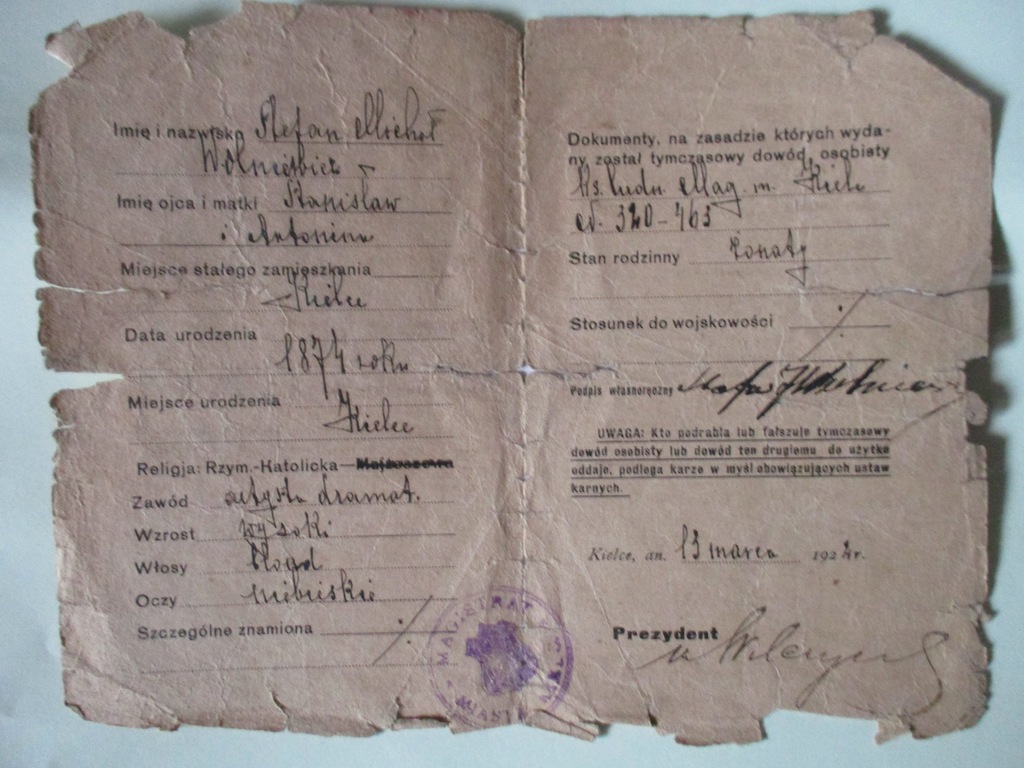 Imię i nazwisko Stefan Michał
Imię ojca i matki Stanisław
i Antonina
Miejsce stałego zamieszkania
Kielce
Data urodzenia
1874 roku
Miejsce urodzenia
Kielce
Religja: Rzym.-Katolicka — Mojżeszowa
Zawód artysta dramat.
Wzrost wysoki
Włosy blond
Oczy niebieskie
Szczególne znamiona
MAGISTRAT
MIASTA
Dokumenty, na zasadzie których wyda-
ny został tymczasowy dowód osobisty
Ks. ludn. Mag. m. Kielc
320-463
Stan rodzinny żonaty
Stosunek do wojskowości
Podpis własnoręczny
UWAGA: Kto podrabia lub fałszuje tymczasowy
dowód osobisty lub dowód ten drugiemu do użytku
oddaje, podlega karze w myśl obowiązujących ustaw
karnych.
Kielce, dn. 13 marca 192 r.
Prezydent